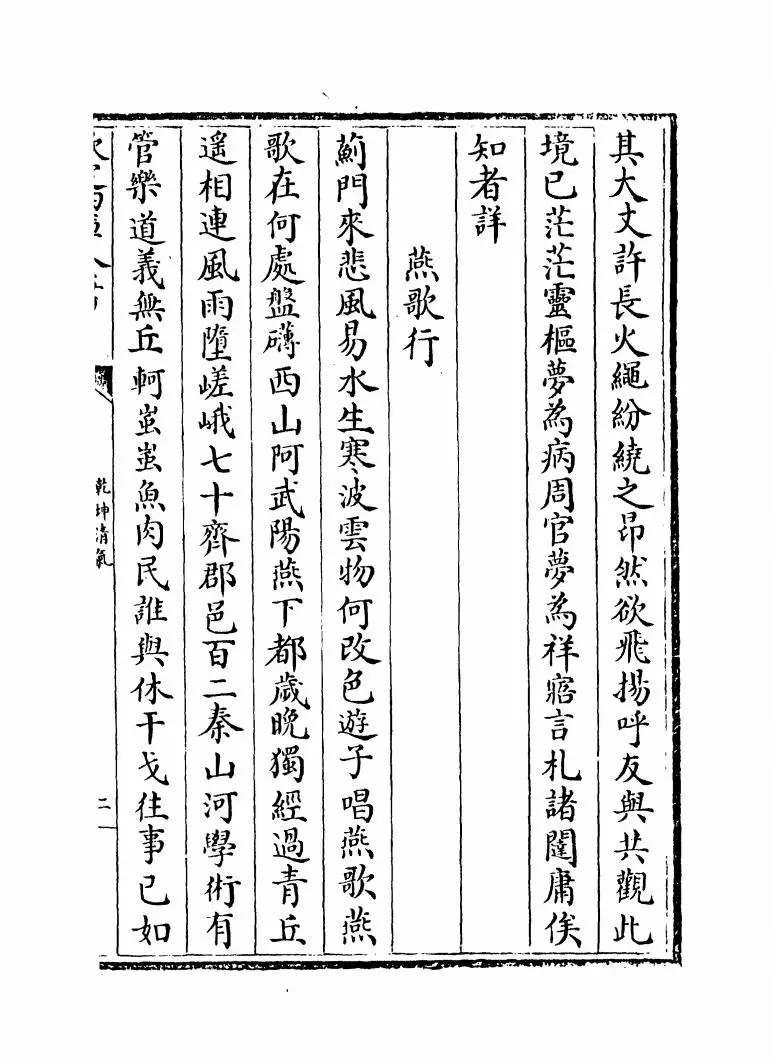 其大丈許長火繩紛繞之昂然欲飛揚呼友與共觀此
境已茫茫靈樞夢為病周官夢為祥寤言札諸闥庸俟
知者詳
燕歌行
薊門來悲風易水生寒波雲物何改色遊子唱燕歌燕
歌在何處盤礴西山阿武陽燕下都歲晚獨經過青丘
遥相連風雨墮嵯峨七十齊郡邑百二秦山河學術有
管樂道義無丘軻蚩蚩魚肉民誰與休干戈往事已如
乾坤清氣
二